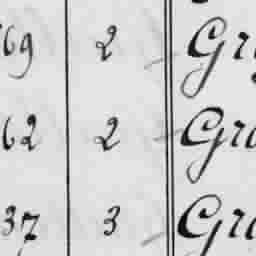 69 2 Gr
62 2 Gra
37 3 Gra